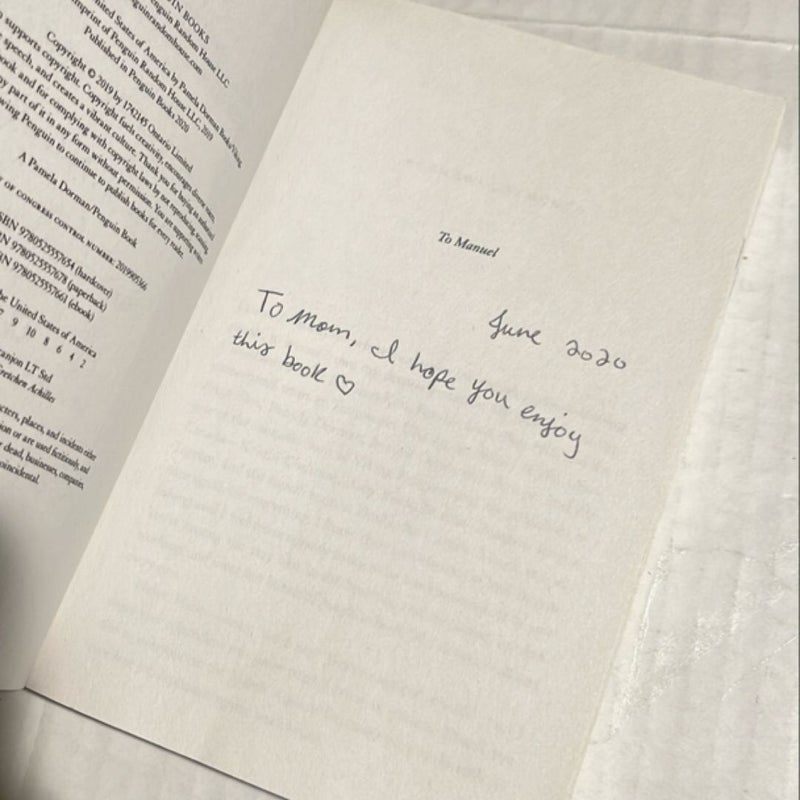 IN BOOKS
mprint of Penguin Random House LLC
enguinrandomhouse.com
United States of America by Pamela Dorman Books/Viking,
Penguin Random House LLC, 2019
Published in Penguin Books 2020
Copyright © 2019 by 1742145 Ontario Limited
supports copyright. Copyright fuels creativity, encourages diverse voices,
speech, and creates a vibrant culture. Thank you for buying an authorized
ook and for complying with copyright laws by not reproducing, scanning,
y part of it in any form without permission. You are supporting writers
wing Penguin to continue to publish books for every reader.
A Pamela Dorman/Penguin Book
Y OF CONGRESS CONTROL NUMBER:
SBN 9780525557654 (hardcover)
N 9780525557678 (paperback)
N 9780525557661 (ebook)
he United States of America
7 9 10 8 6 4 2
ranjon LT Std
Gretchen Achilles
cters, places, and incidents either
ion or are used fictitiously, and
r dead, businesses, companies,
oincidental.
To Manuel
June 2020
To Mom, I hope you enjoy
this book ♡